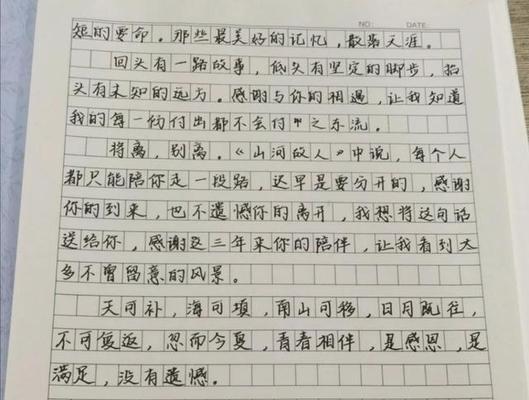 NO: DATE:
短的要命。那些最美好的记忆，散落天涯。
回头有一路故事，低头有坚定的脚步，抬
头有未知的远方。感谢与你的相遇，让我知道
我的每一份付出都不会付之东流。
将离，别离。《山河故人》中说，每个人
都只能陪你走一段路，迟早是要分开的，感谢
你的到来，也不遗憾你的离开，我想将这句话
送给你，感谢这三年来你的陪伴，让我看到太
多不曾留意的风景。
天可补，海可填，南山可移，日月既往，
不可复返，忽而今夏，青春相伴，是感恩，是
满足，没有遗憾。